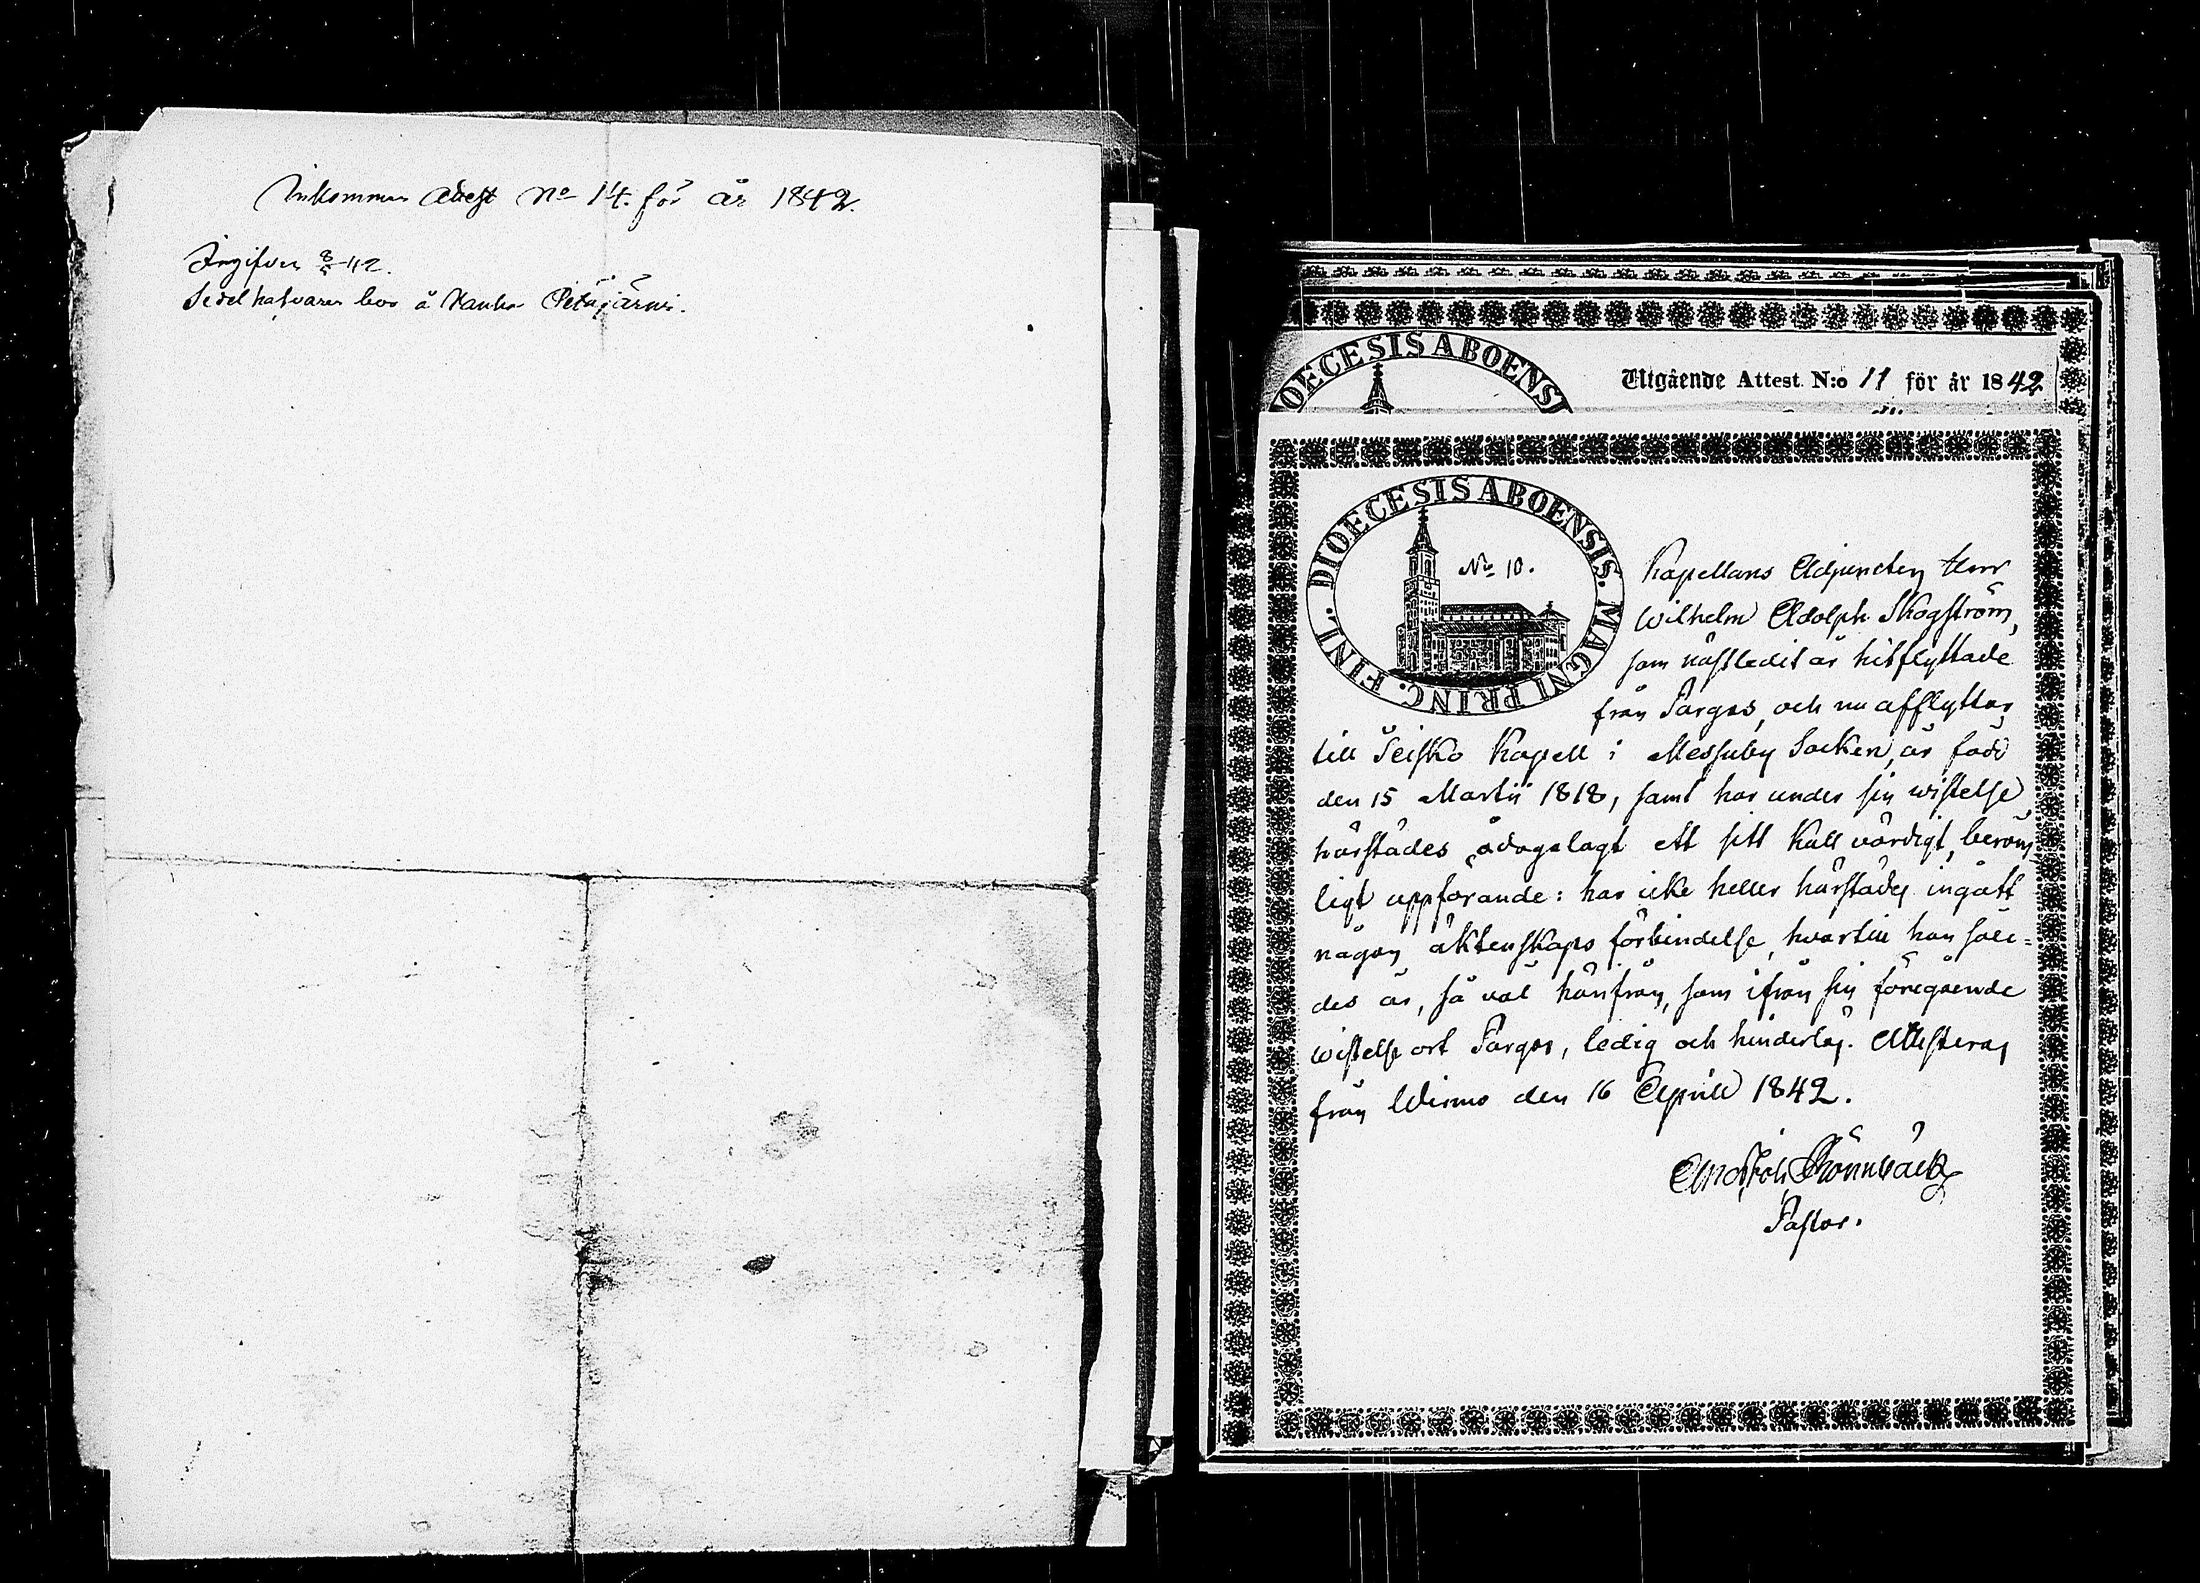 Inkommen Attest No 14. för år 1842.
Ingifven 8/5 42.
Sedelhafvaren bor å Kauha Petäjärvi.
DIOECESIS ABOENSI
Utgående Attest N:o 11 för år 1842
DIOECESIS ABOENSIS. MAGNI PRINC. FINL.
No 10.
Kapellans Adjuncten Herr
Wilhelm Adolph Skogström,
som nästledit år hitflyttade
från Pargas, och nu afflyttar
till Teisko Kapell i Messuby Socken, är född
den 15 Martii 1818, samt har under sin wistelse
härstädes ådagalagt ett sitt kall värdigt, beröm-
ligt uppförande: har icke heller härstädes ingått
någon äktenskaps förbindelse, hvartill han såle=
des är, så väl härifrån, som ifrån sin föregående
wistelse ort Pargas, ledig och hinderlös. Attesteras
från Wirmo den 16 Aprill 1842.
Rönnbäck
Pastor.